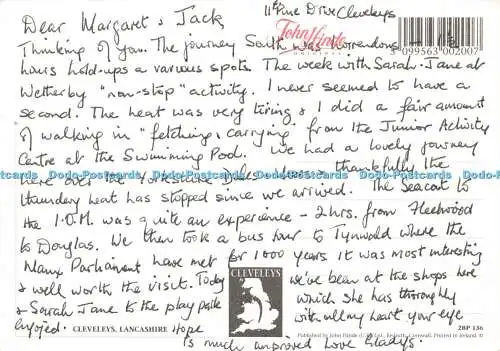 11 Pine Drive Cleveleys
Dear Margaret & Jack,
John Hinde
ORIGINAL
5 099563 002007
Thinking of you. The journey South was horrendous - 1½
hours hold-ups a various spots. The week with Sarah-Jane at
Wetherby "non-stop" activity. I never seemed to have a
second. The heat was very tiring & I did a fair amount
of walking in "fetching & carrying" from the Junior Activity
Centre at the Swimming Pool. We had a lovely journey
here over the Yorkshire Dales thankfully the
thundery heat has stopped since we arrived. The Seacat to
the I.O.M. was quite an experience - 2 hrs. from Fleetwood
to Douglas. We then took a bus tour to Tynwald where the
Manx Parliament have met for 1000 years it was most interesting
& well worth the visit. Today we've been at the shops here
& Sarah Jane to the play park which she has thoroughly
enjoyed. Hope with all my heart your eye
is much improved Love Gladys.
CLEVELEYS
CLEVELEYS, LANCASHIRE
2BP 136
Published by John Hinde (U.K.) Ltd., Redruth, Cornwall. Printed in Ireland. ©
Dodo-Postcards Dodo-Postcards Dodo-Postcards Dodo-Postcards